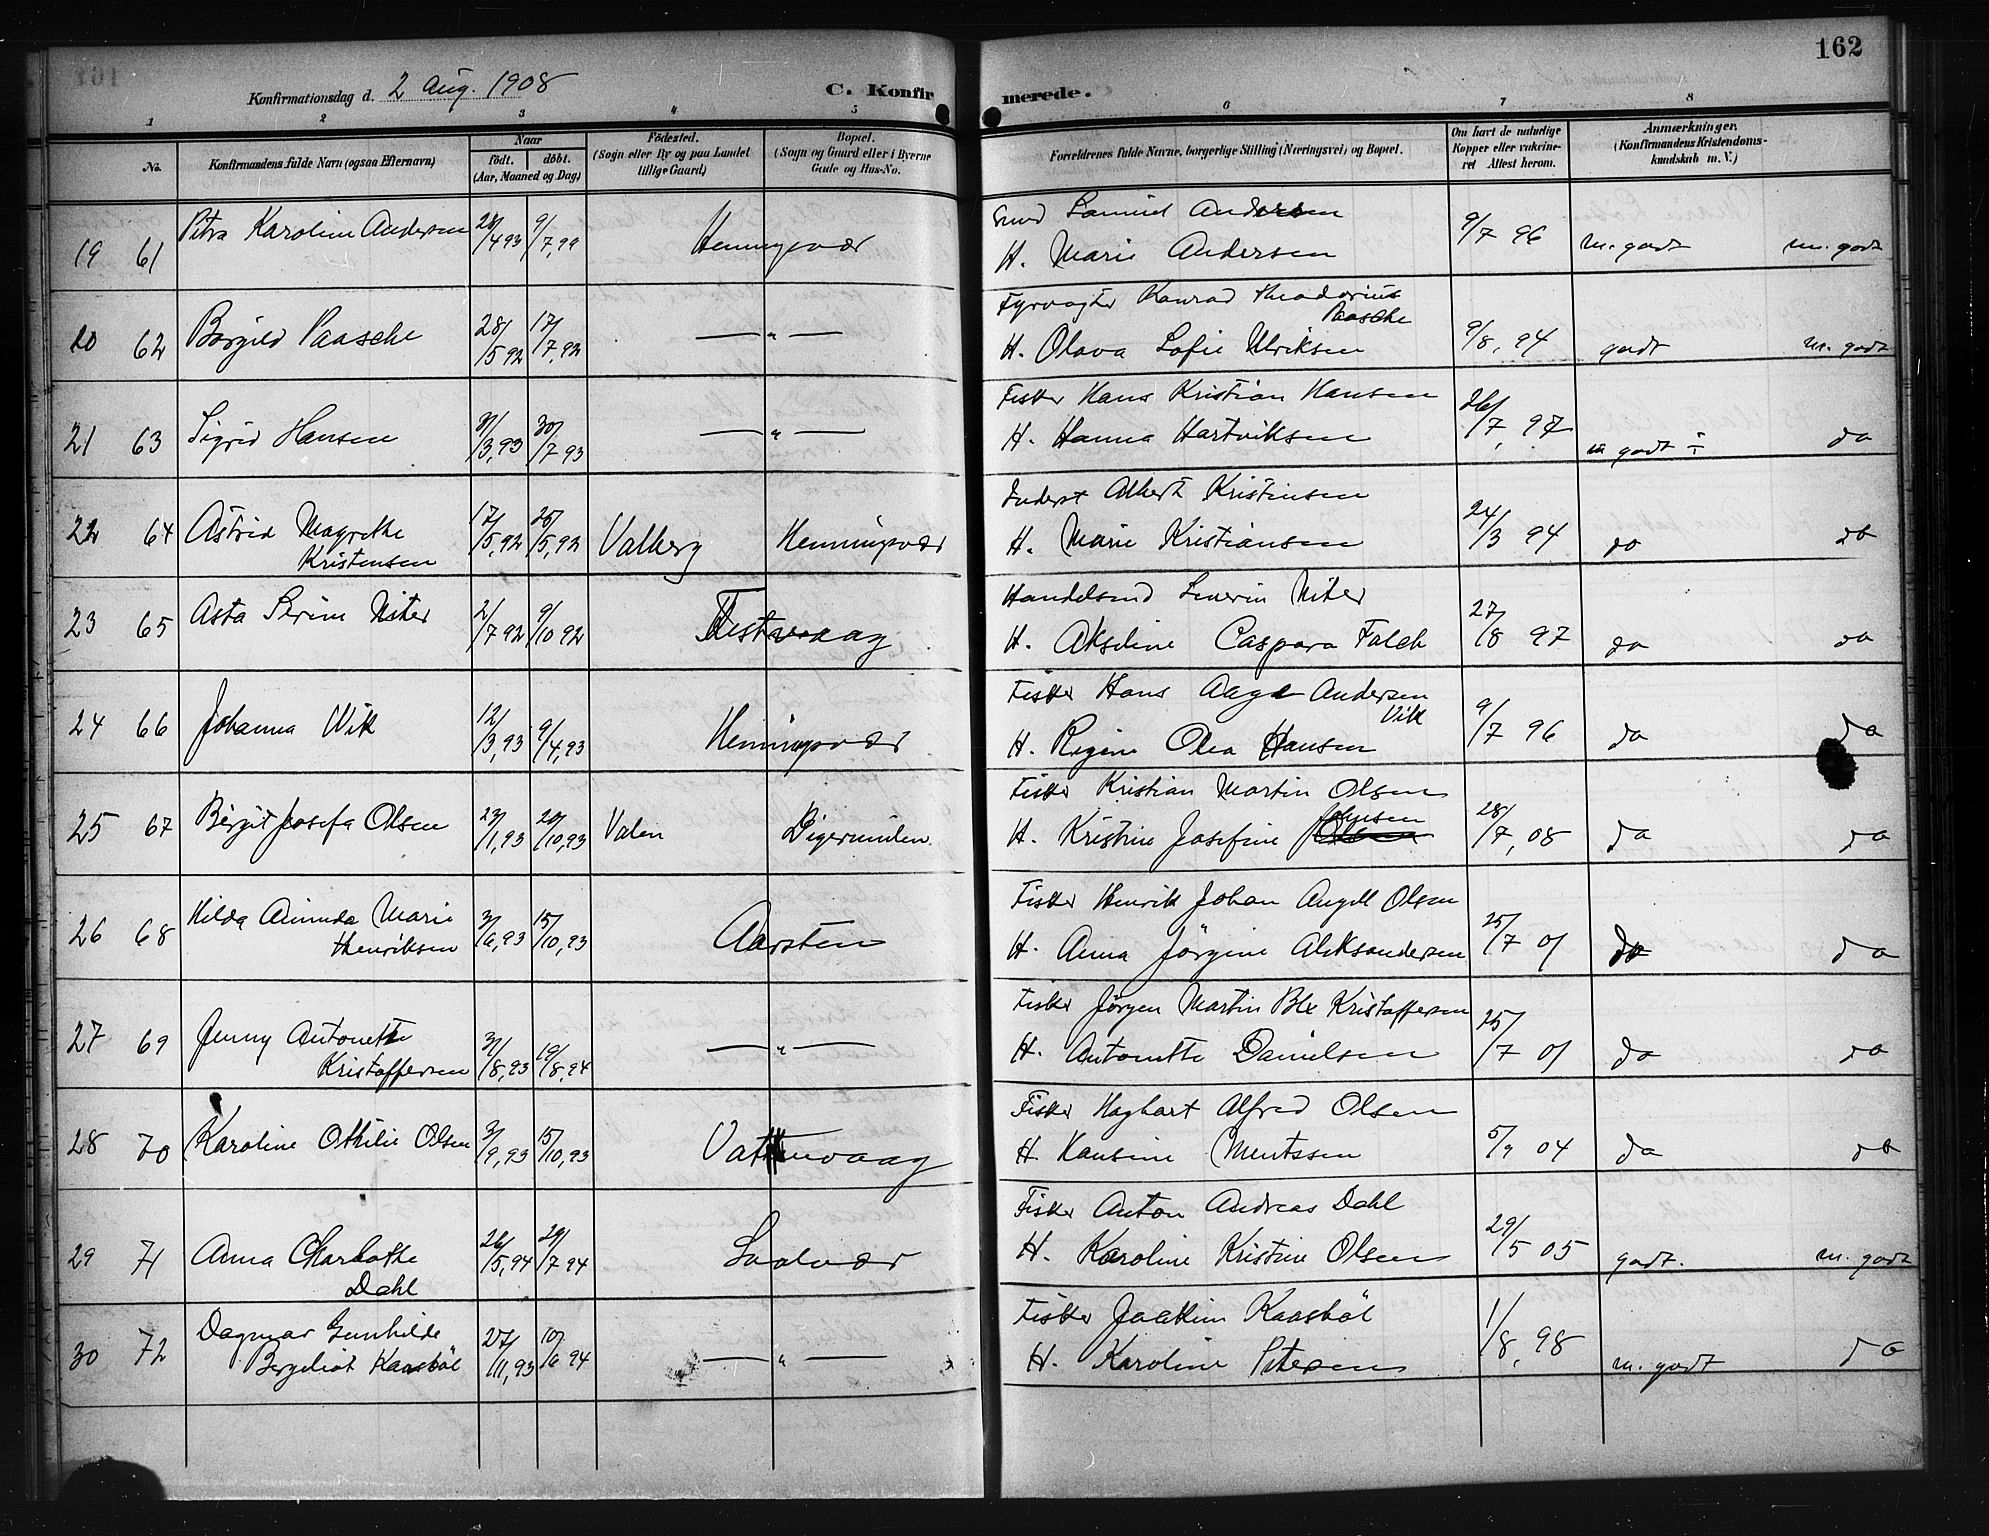 162
Konfirmationsdag d. 2 Aug. 1908
C. Konfirmerede.
1 2 3 4 5 6 7 8
No.
Konfirmandens fulde Navn (ogsaa Efternavn)
Naar
født. døbt.
(Aar, Maaned og Dag)
Födested.
(Sogn eller By og paa Landet
tillige Gaard)
Bopæl.
(Sogn og Gaard eller i Byerne
Gade og Hus-No.
Forældrenes fulde Navne, borgerlige Stilling (Næringsvei) og Bopæl.
Om havt de naturlige
Kopper eller vaccine-
ret Attest herom.
Anmærkninger.
(Konfirmandens Kristendoms-
kundskab m. V.)
19 61 Petra Karoline Andersen 28/4 93 9/7, 99 Henningsvær
Smed Samuel Andersen
H. Marie Andersen 9/7 96 m. godt m. godt
20 62 Borgild Paasche 28/5 92 17/7, 92 — " —
Fyrvogter Konrad Theodorius
Paasche
H. Olava Sofie Ulriksen 9/8, 94 godt m. godt
21 63 Sigrid Hansen 31/3, 93 30/7 93 — " —
Fisker Hans Kristian Hansen
H. Hanna Hartviksen 26/7, 97 m godt ÷ do
22 64 Astrid Magrethe
Kristensen 17/5, 92 25/5, 92 Valberg Henningsvær
Inderst Albert Kristensen
H. Marie Kristiansen 24/3 94 do do
23 65 Asta Serine Niter 2/7 92 9/10 92 Festvaag
Handelsmd Severin Niter
H. Akseline Caspara Falch 27/8 97 do do
24 66 Johanna Wik 12/3, 93 9/4, 93 Henningsvær
Fisker Hans Aage Andersen
Vik
H. Regine Olea Hansen 9/7 96 do do
25 67 Birgit Josefa Olsen 23/1, 93 20/10, 93 Valen Digermulen
Fisker Kristian Martin Olsen
H. Kristine Josefine Johnsen 28/7, 08 do do
26 68 Hilda Aminda Marie
Henriksen 3/6, 93 15/10, 93 Aarsten
Fisker Henrik Johan Angell Olsen
H. Anna Jörgine Aleksandersen 25/7 01 do do
27 69 Jenny Antonette
Kristoffersen 31/8, 93 19/8, 94 — " —
Fisker Jørgen Martin Blx Kristoffersen
H. Antonette Danielsen 25/7 01 do do
28 70 Karoline Othilie Olsen 3/9, 93 15/10, 93
Fisker Haghart Alfred Olsen
H. Hansine Mentssen 5/9 04 do do
29 71 Anna Charlotte
Dahl 26/5, 94 29/7 94 Svolvær
Fisker Anton Andreas Dahl
H. Karoline Kristine Olsen 29/5 05 godt. m. godt
30 72 Dagmar Gunhilde
Bergeliot Kaasböl 27/11, 93 10/6 94 — " —
Fisker Joakim Kaasböl
H. Karoline Petersen 1/8, 98 m. godt do